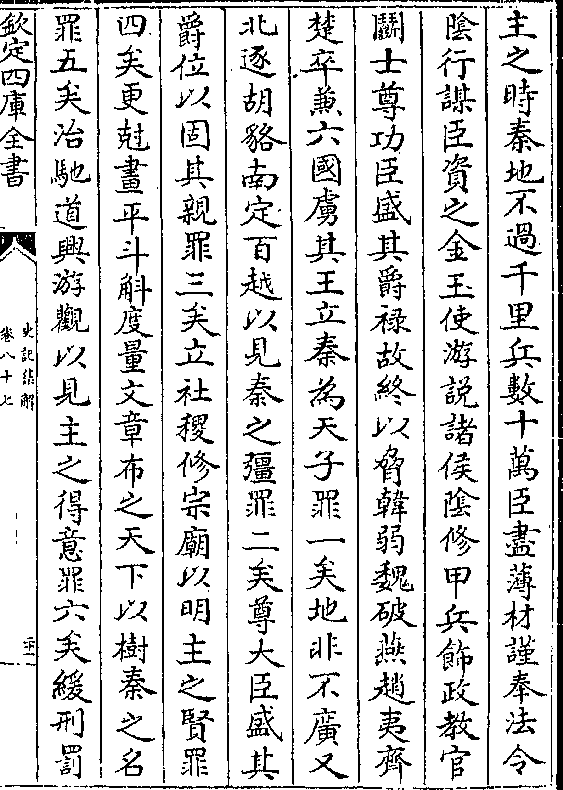 主之時秦地不過千里兵數十萬臣盡薄材謹奉法令
陰行謀臣資之金玉使游説諸侯陰修甲兵飾政教官
鬭士尊功臣盛其爵禄故終以脅韓弱魏破燕趙夷齊
楚卒兼六國虜其王立秦為天子罪一矣地非不廣又
北逐胡貉南定百越以見秦之彊罪二矣尊大臣盛其
爵位以固其親罪三矣立社稷修宗廟以明主之賢罪
四矣更尅畫平斗斛度量文章布之天下以樹秦之名
罪五矣治馳道興游觀以見主之得意罪六矣緩刑罰
欽定四庫全書
史記集解
卷八十七
二十一